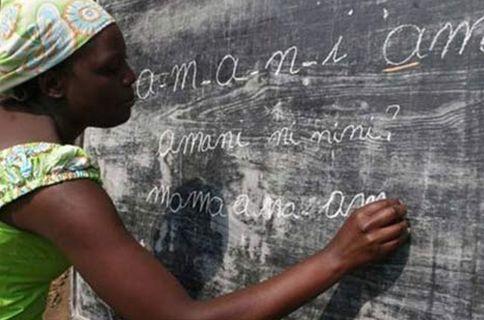 a-m-a-n-i am
amani ni nini?
mama ana am